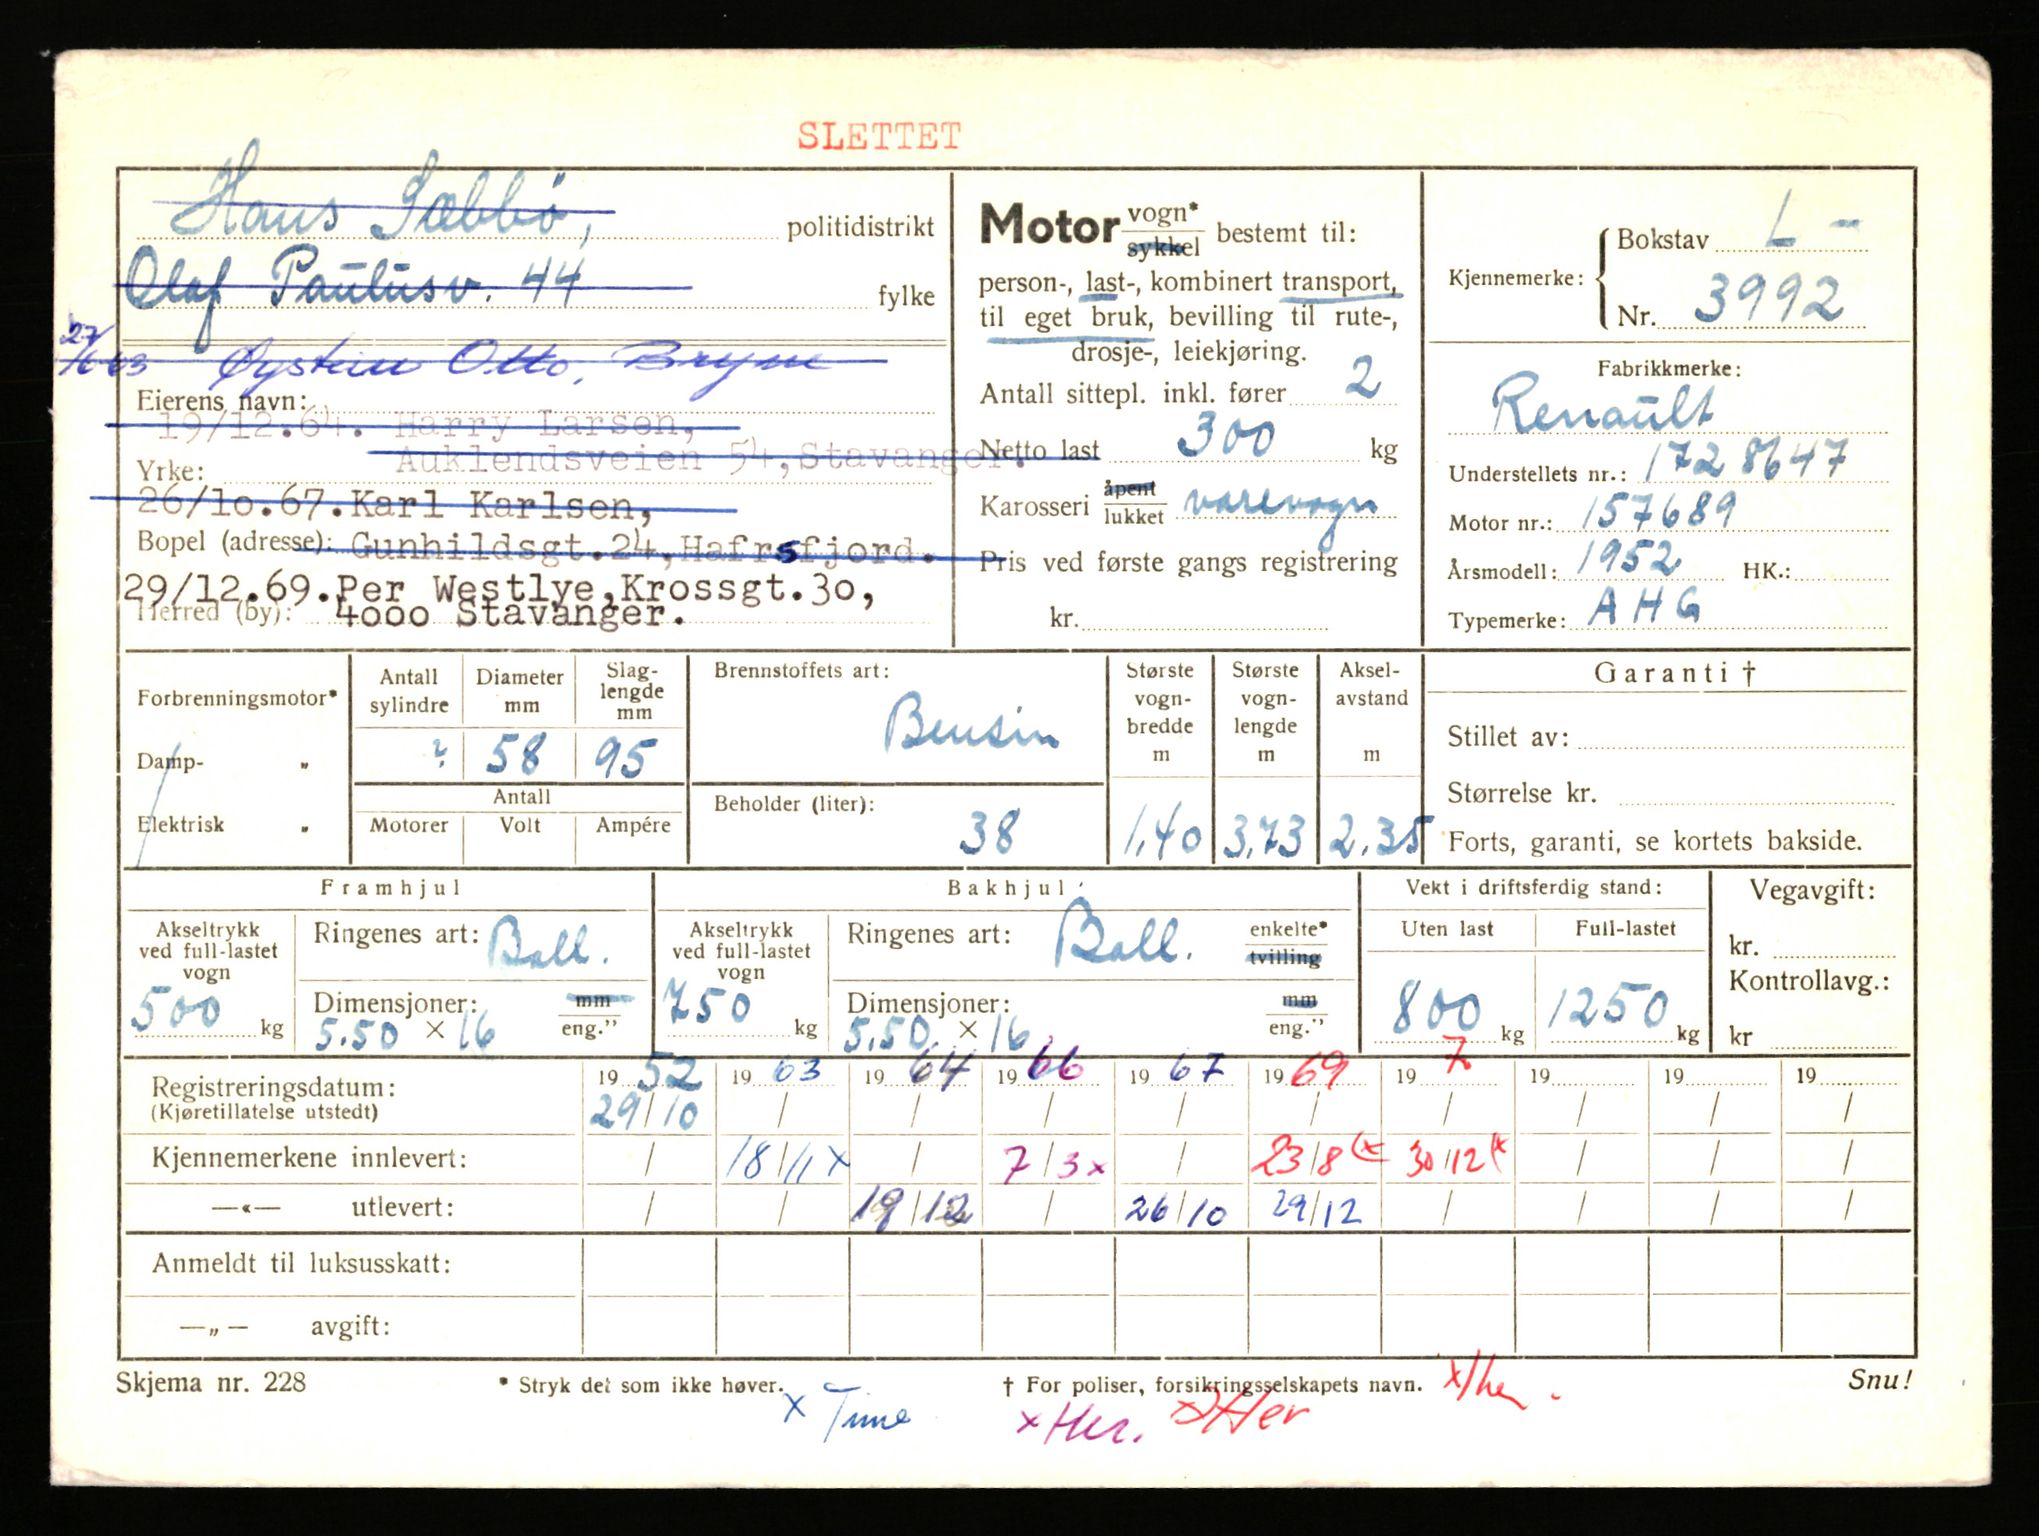 SLETTET
Hans Sæbbö, politidistrikt
Olaf Paulusv. 44 fylke
27/6 63 Øystein Otto, Bryne
Eierens navn:
19/12.64. Harry Larsen,
Yrke: Auklendsveien 54, Stavanger.
26/10.67. Karl Karlsen,
Bopel (adresse): Gunhildsgt. 24, Hafrsfjord.
29/12.69. Per Westlye, Krossgt. 30,
Herred (by): 4000 Stavanger.
Motor vogn* sykkel bestemt til:
person-, last-, kombinert transport,
til eget bruk, bevilling til rute-,
drosje-, leiekjøring.
Antall sittepl. inkl. fører 2
Netto last 300 kg
Karosseri åpent lukket varevogn
Pris ved første gangs registrering
kr.
Kjennemerke: Bokstav L -
Nr. 3992
Fabrikkmerke:
Renault
Understellets nr.: 1728647
Motor nr.: 157689
Årsmodell: 1952 HK.:
Typemerke: AHG
Forbrenningsmotor*
Damp- „
Elektrisk „
Antall sylindre ?
Diameter mm 58
Slag-lengde mm 95
Antall
Motorer Volt Ampére
Brennstoffets art:
Bensin
Beholder (liter):
38
Største vogn-bredde m 1,40
Største vogn-lengde m 3,73
Aksel-avstand m 2.35
Garanti †
Stillet av:
Størrelse kr.
Forts, garanti, se kortets bakside.
Framhjul
Akseltrykk ved full-lastet vogn
500 kg
Ringenes art: Ball.
Dimensjoner: mm
5.50 × 16 eng.”
Bakhjul
Akseltrykk ved full-lastet vogn
750 kg
Ringenes art: Ball. enkelte* tvilling
Dimensjoner: mm
5.50 × 16 eng.”
Vekt i driftsferdig stand:
Uten last Full-lastet
800 kg 1250 kg
Vegavgift:
kr.
Kontrollavg.:
kr
Registreringsdatum: 19 52 19 63 19 64 19 66 19 67 19 69 19 7 19 19 19
(Kjøretillatelse utstedt) 29/10 / / / / / / / / /
Kjennemerkene innlevert: / 18/11 x / 7/3 x / 23/8 (x 30/12 (x / / /
—«— utlevert: / / 19/12 / 26/10 29/12 / / / /
Anmeldt til luksusskatt:
—„— avgift:
Skjema nr. 228 * Stryk det som ikke høver. † For poliser, forsikringsselskapets navn. Snu!
x Time x Her. x Her x Her.